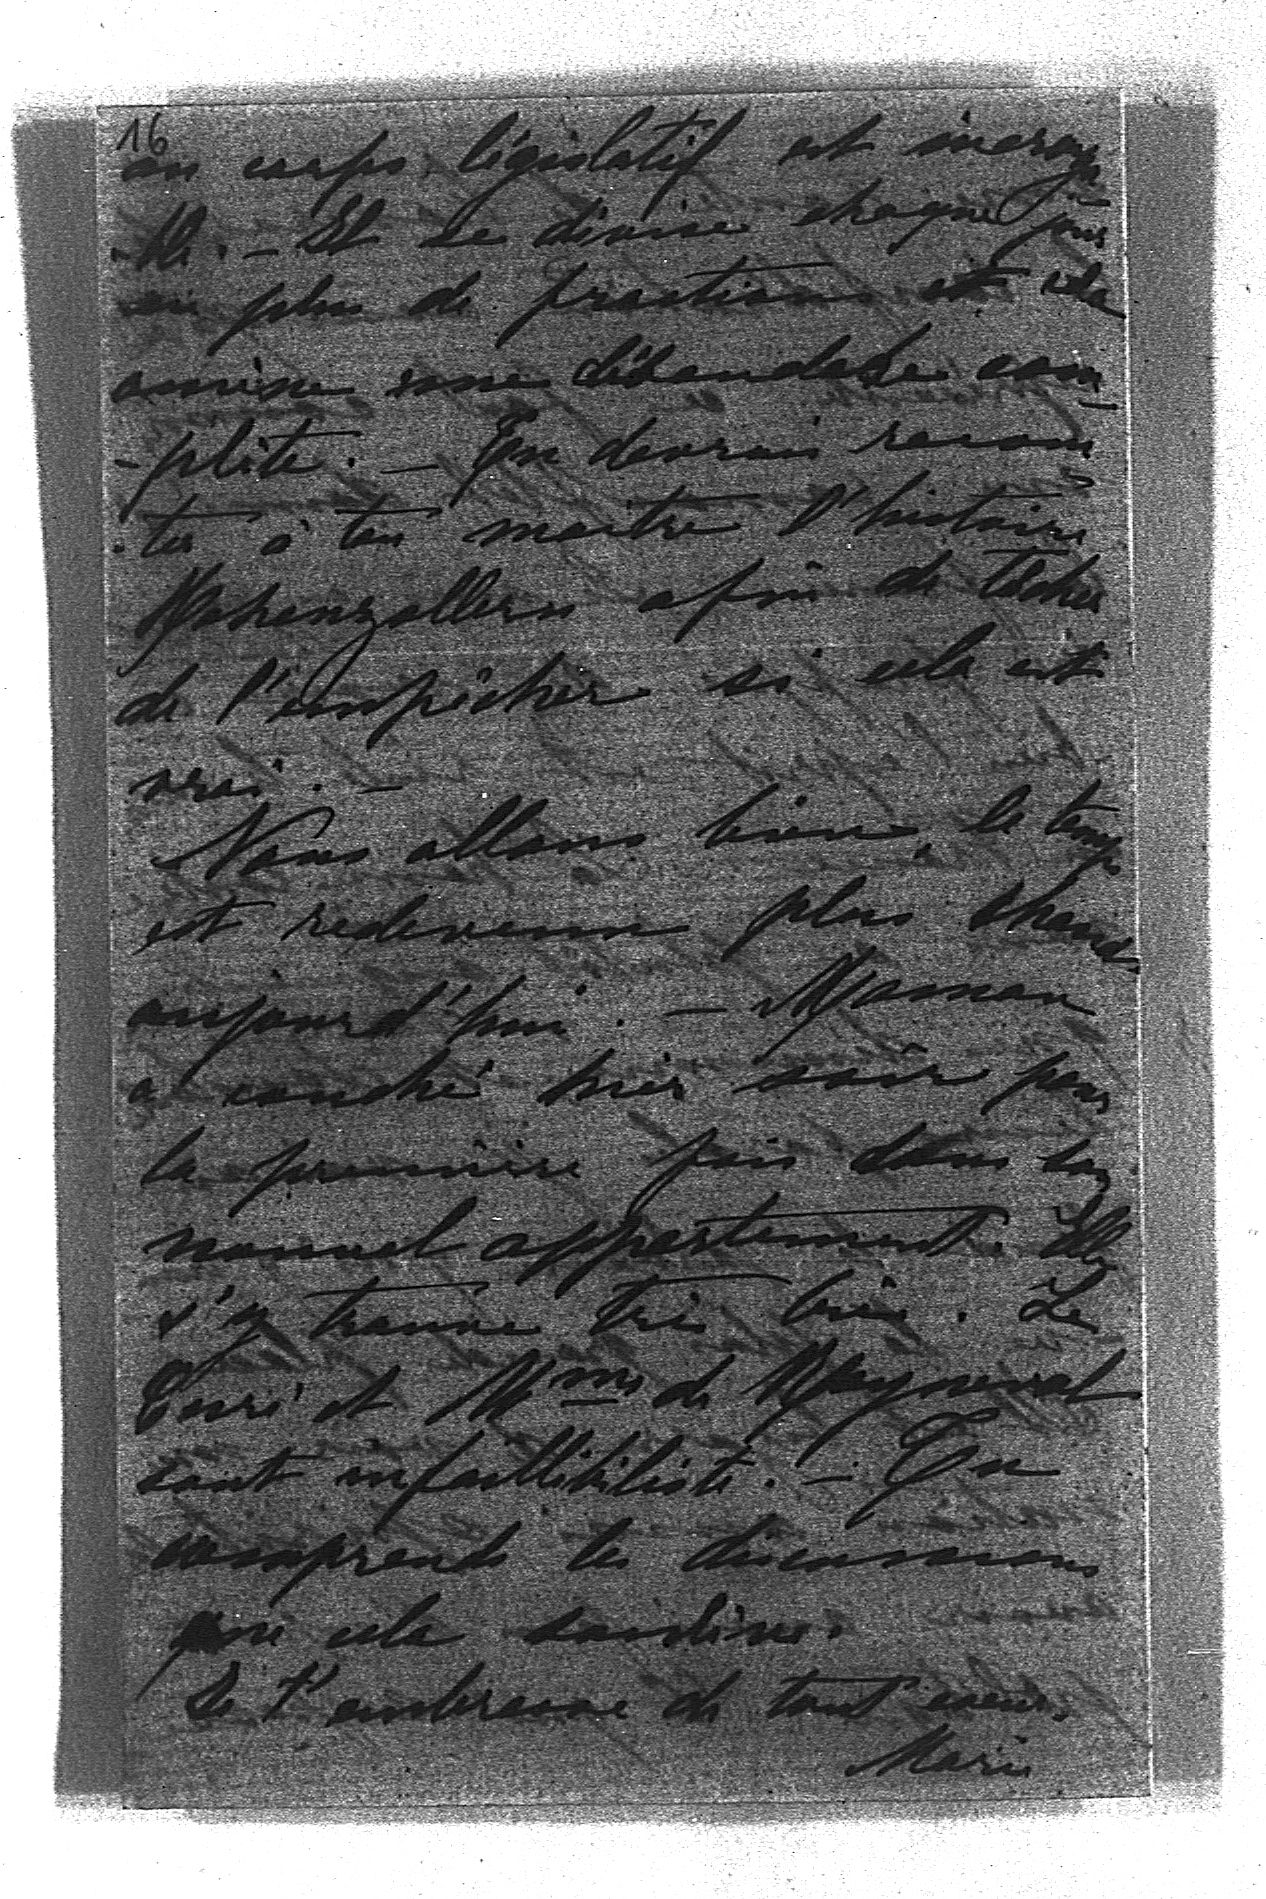 16
au corps législatif est incroya
-ble. - Il se divise chaque jour
en plus de fractions et cela
amène une débandade com
-plète. - Tu devrais racon
-ter à ton maître l'histoire
Hohenzollern afin de tâcher
de l'empêcher si cela est
vrai. -
Nous allons bien, le temps
est redevenu plus chaud
aujourd'hui. - Maman
a couché hier soir pour
la première fois dans son
nouvel appartement. Elle
s'y trouve très bien. Le
Curé et Mme de Rayneval
sont infaillibiliste. - Tu
comprends les discussions
que cela
Je t'embrasse de tout coeur.
Marie